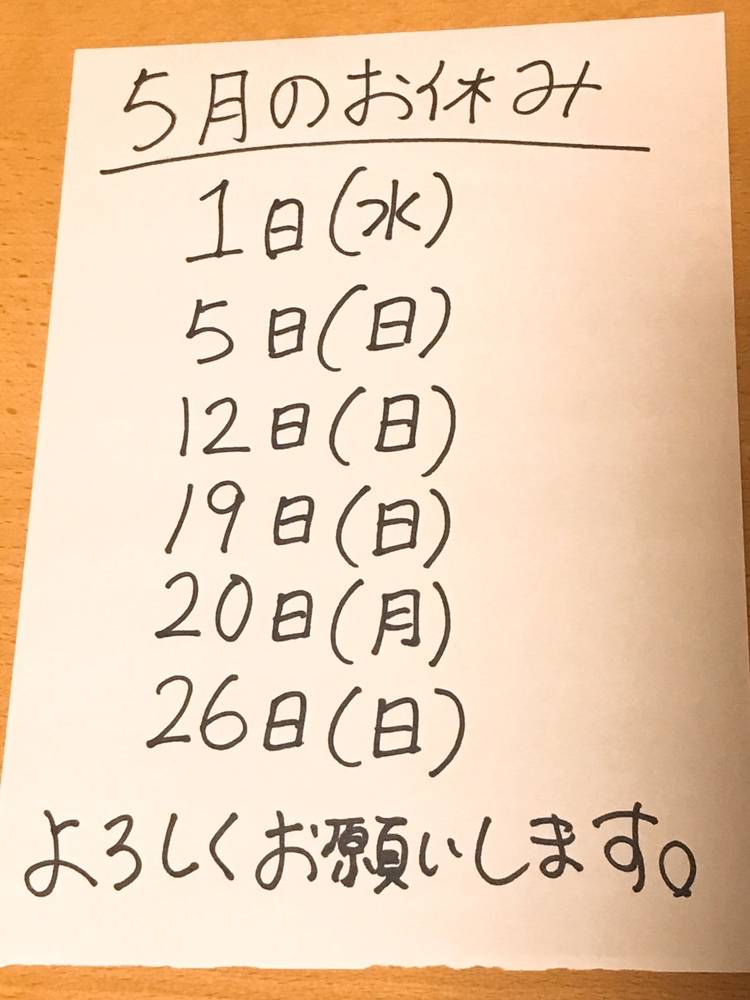 5月のお休み
1日(水)
5日(日)
12日(日)
19日(日)
20日(月)
26日(日)
よろしくお願いします。